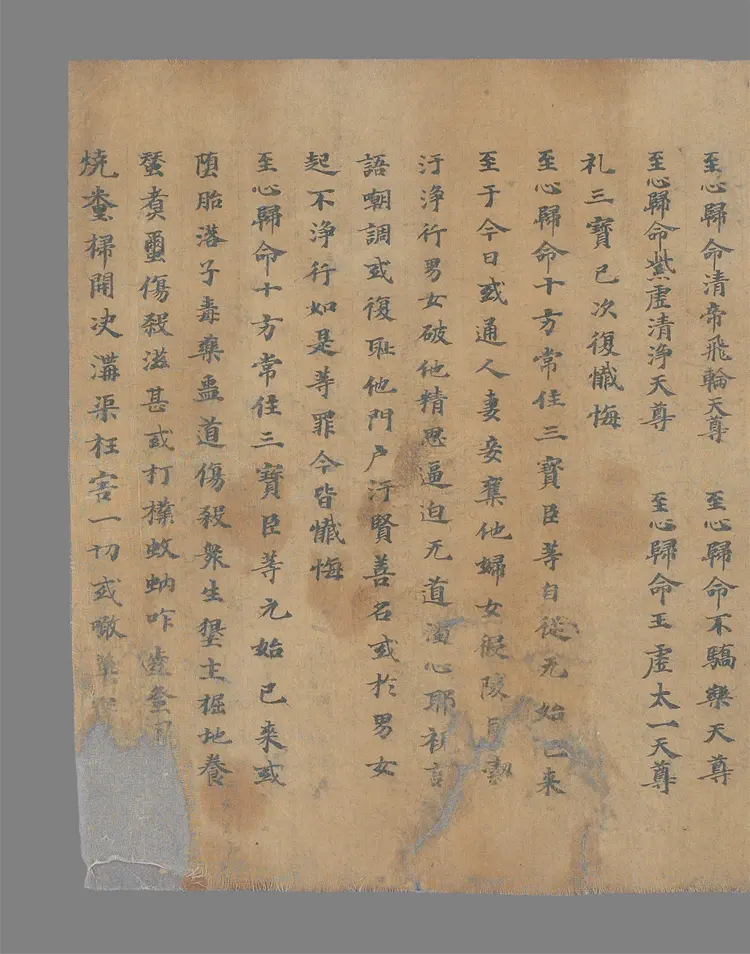 至心歸命清帝飛輪天尊 至心歸命不驕樂天尊
至心歸命紫虛清淨天尊 至心歸命玉虛太一天尊
礼三寶已次復懺悔
至心歸命十方常住三寶臣等自從无始已来
至于今日或通人妻妾棄他婦女假陵
汙淨行男女破他精思逼迫无道濁心耶
語嘲調或復恥他門户汙賢善名或於男女
起不淨行如是等罪今皆懺悔
至心歸命十方常住三寶臣等元始已来或
堕胎落子毒藥蠱道傷殺衆生墾土掘地養
蠶煮璽傷殺滋甚或打撲蚊蚋咋
燒糞掃開决溝渠枉害一切或噉